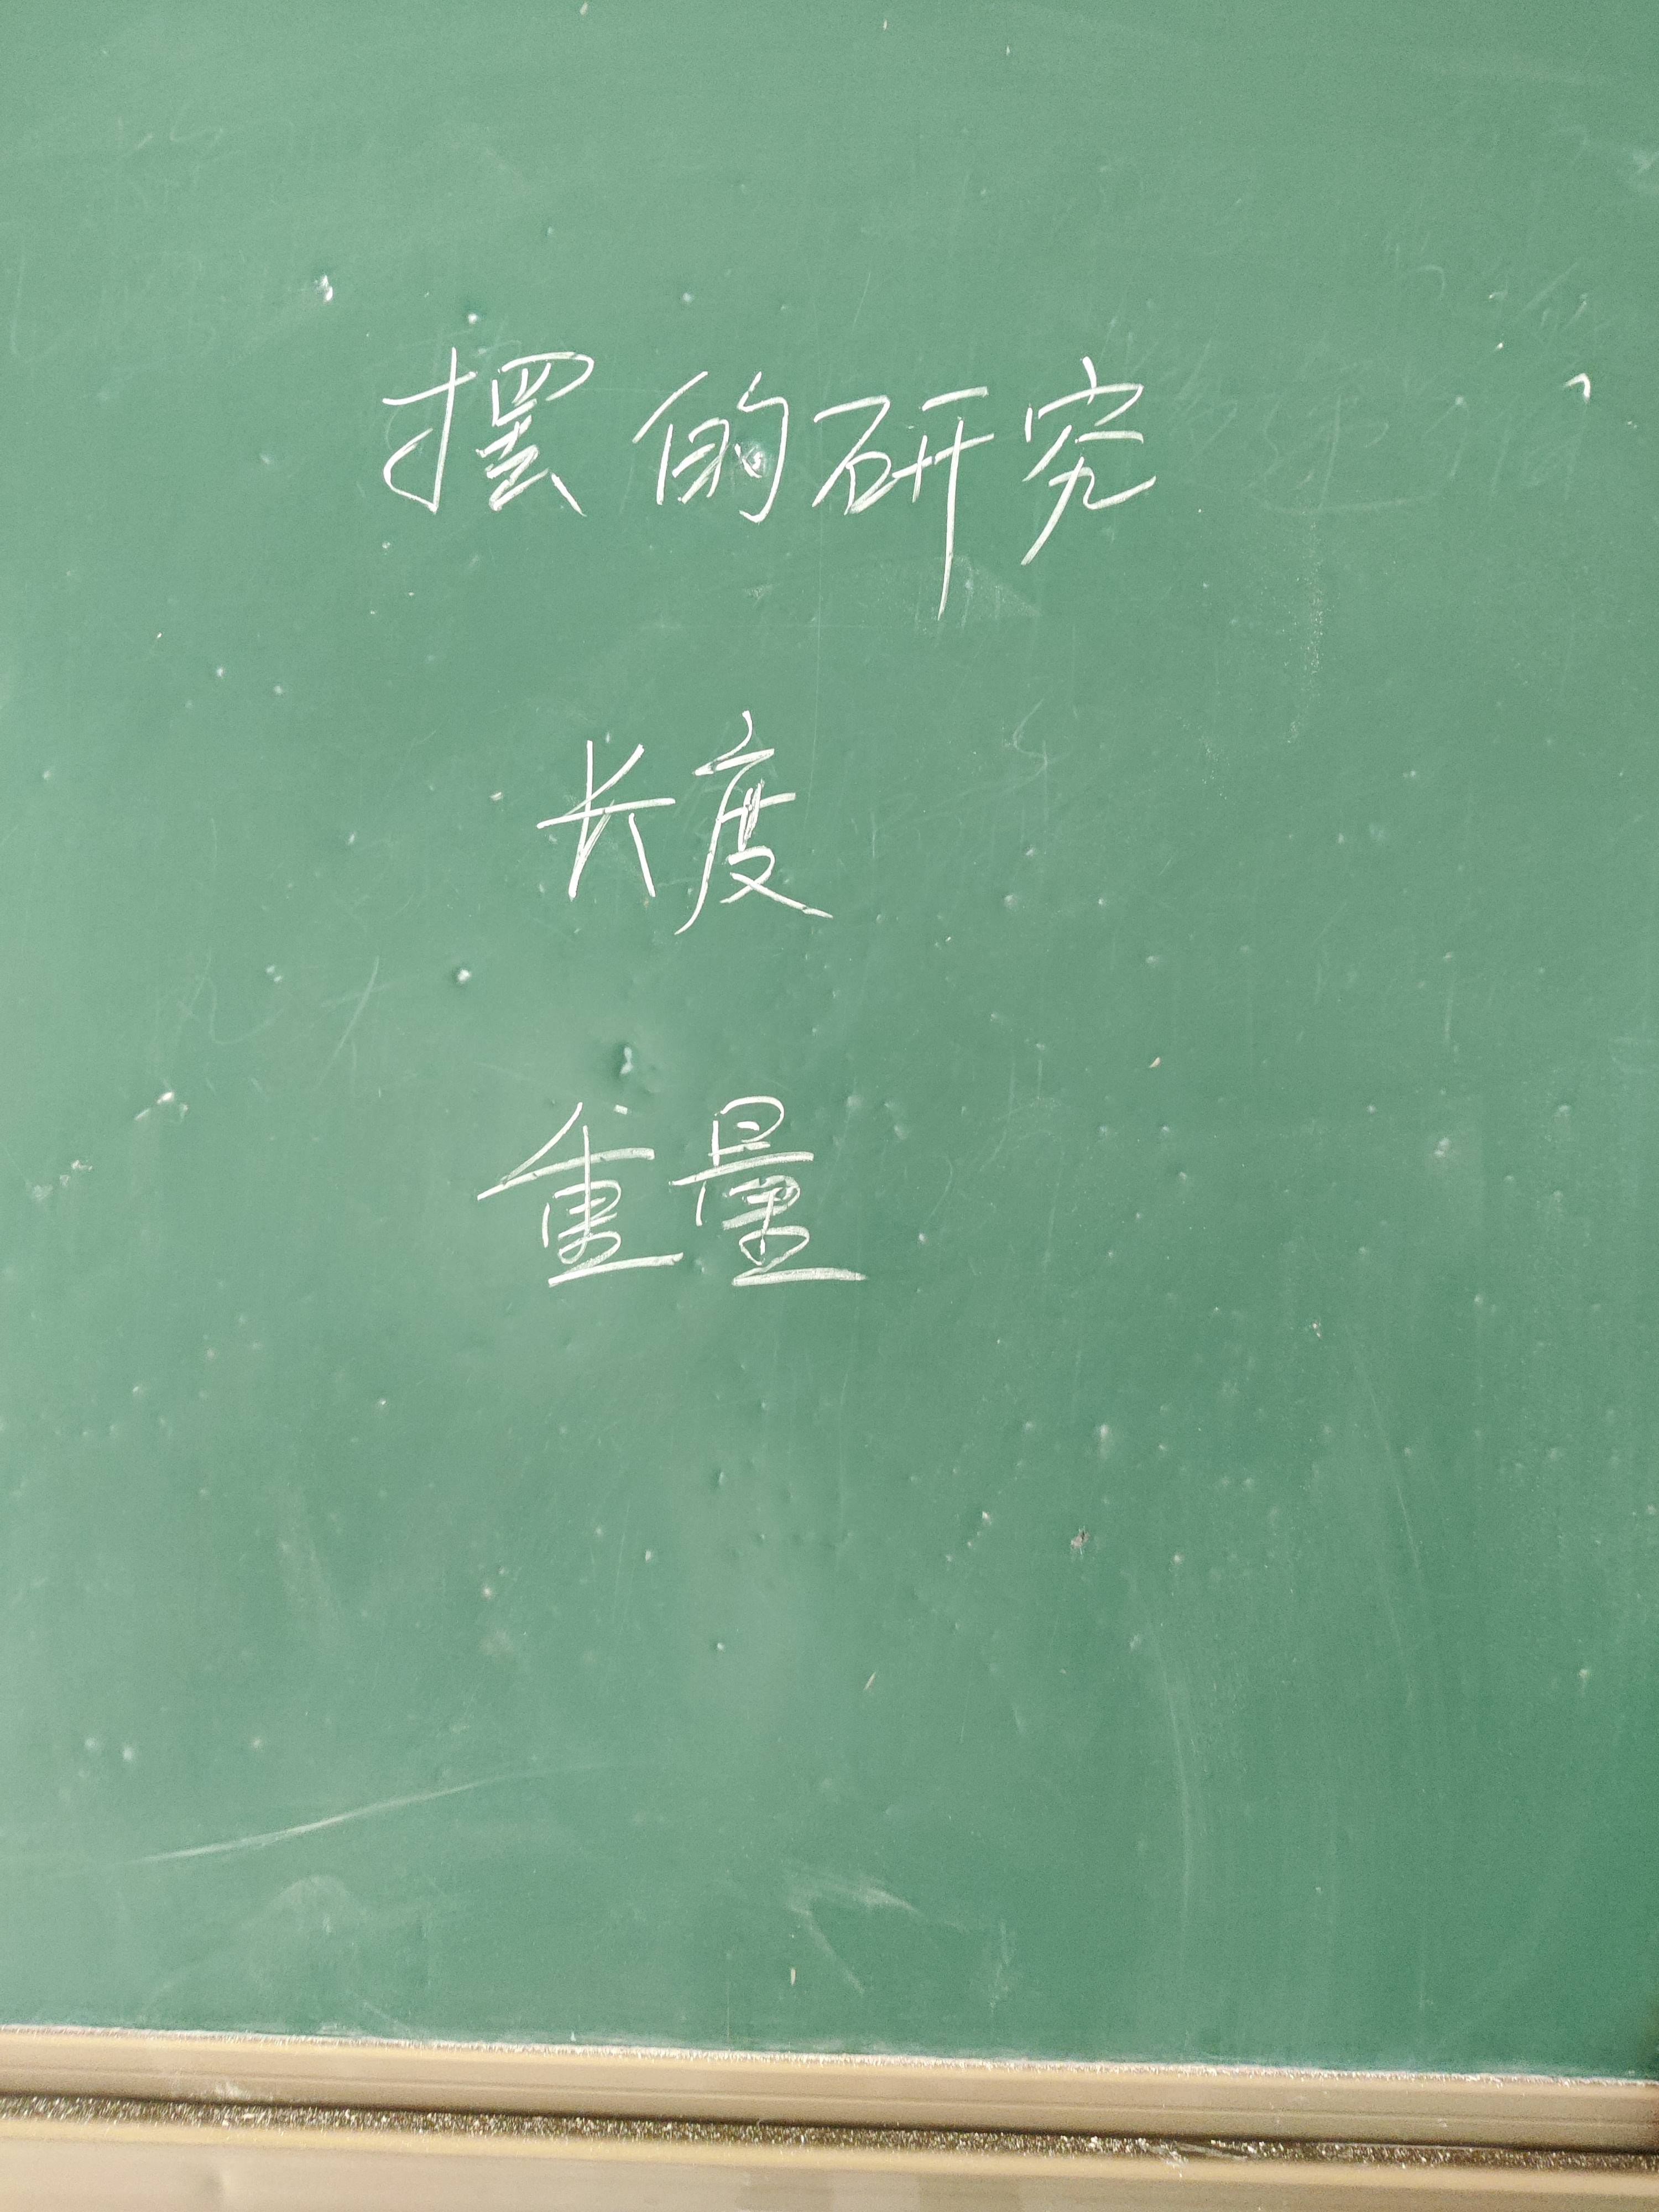 摆的研究
长度
重量